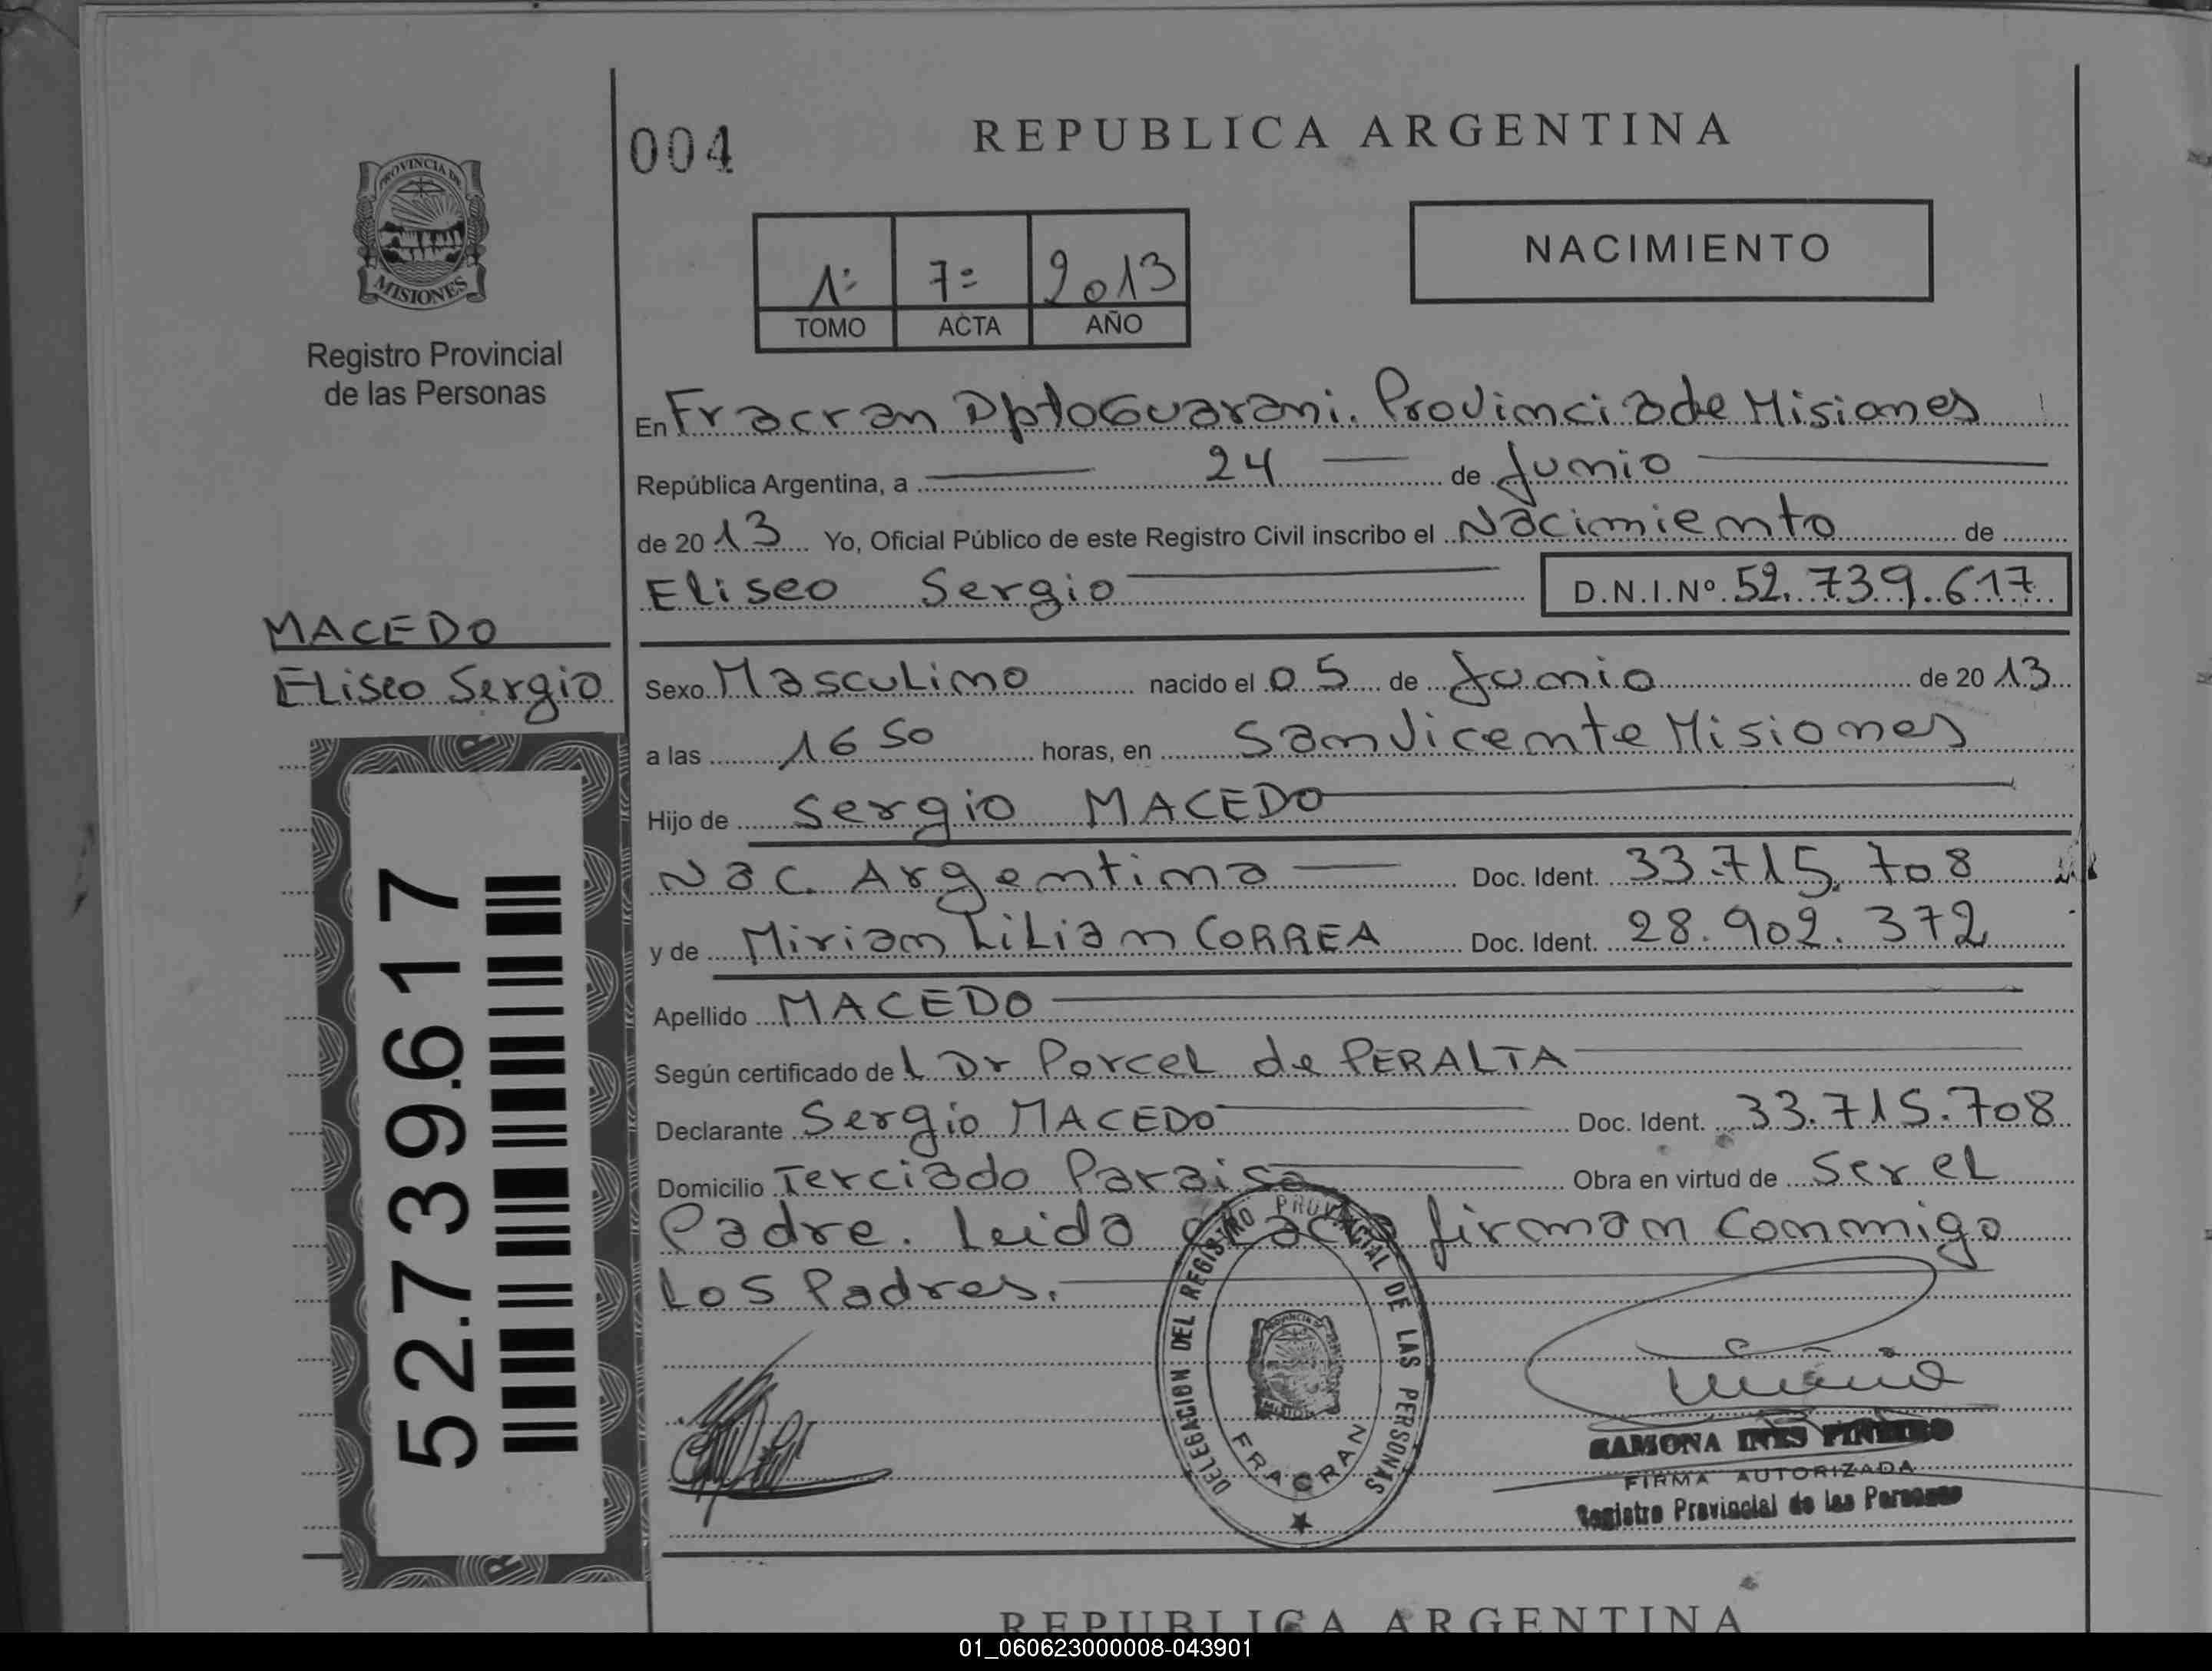 004
REPUBLICA ARGENTINA
PROVINCIA DE
MISIONES
Registro Provincial
de las Personas
1º 7º 2013
TOMO ACTA AÑO
NACIMIENTO
En Fracran Dpto Guarani. Provincia de Misiones
República Argentina, a 24 de Junio
de 2013 Yo, Oficial Público de este Registro Civil inscribo el Nacimiento de
Eliseo Sergio D.N.I.Nº 52.739.617
MACEDO
Eliseo Sergio
Sexo Masculino nacido el 05 de Junio de 2013
a las 16 50 horas, en San Vicente Misiones
Hijo de Sergio MACEDO
Nac. Argentina Doc. Ident. 33.715.708
y de Miriam Lilian CORREA Doc. Ident. 28.902.372
Apellido MACEDO
Según certificado del Dr Porcel de PERALTA
Declarante Sergio MACEDO Doc. Ident. 33.715.708
Domicilio Terciado Paraiso Obra en virtud de Ser el
Padre. Leida el acta firman conmigo
Los Padres.
52.739.617
DELEGACION DEL REGISTRO PROVINCIAL DE LAS PERSONAS
FRACRAN
RAMONA INES PIÑEIRO
FIRMA AUTORIZADA
Registro Provincial de las Personas
REPUBLICA ARGENTINA
01_060623000008-043901